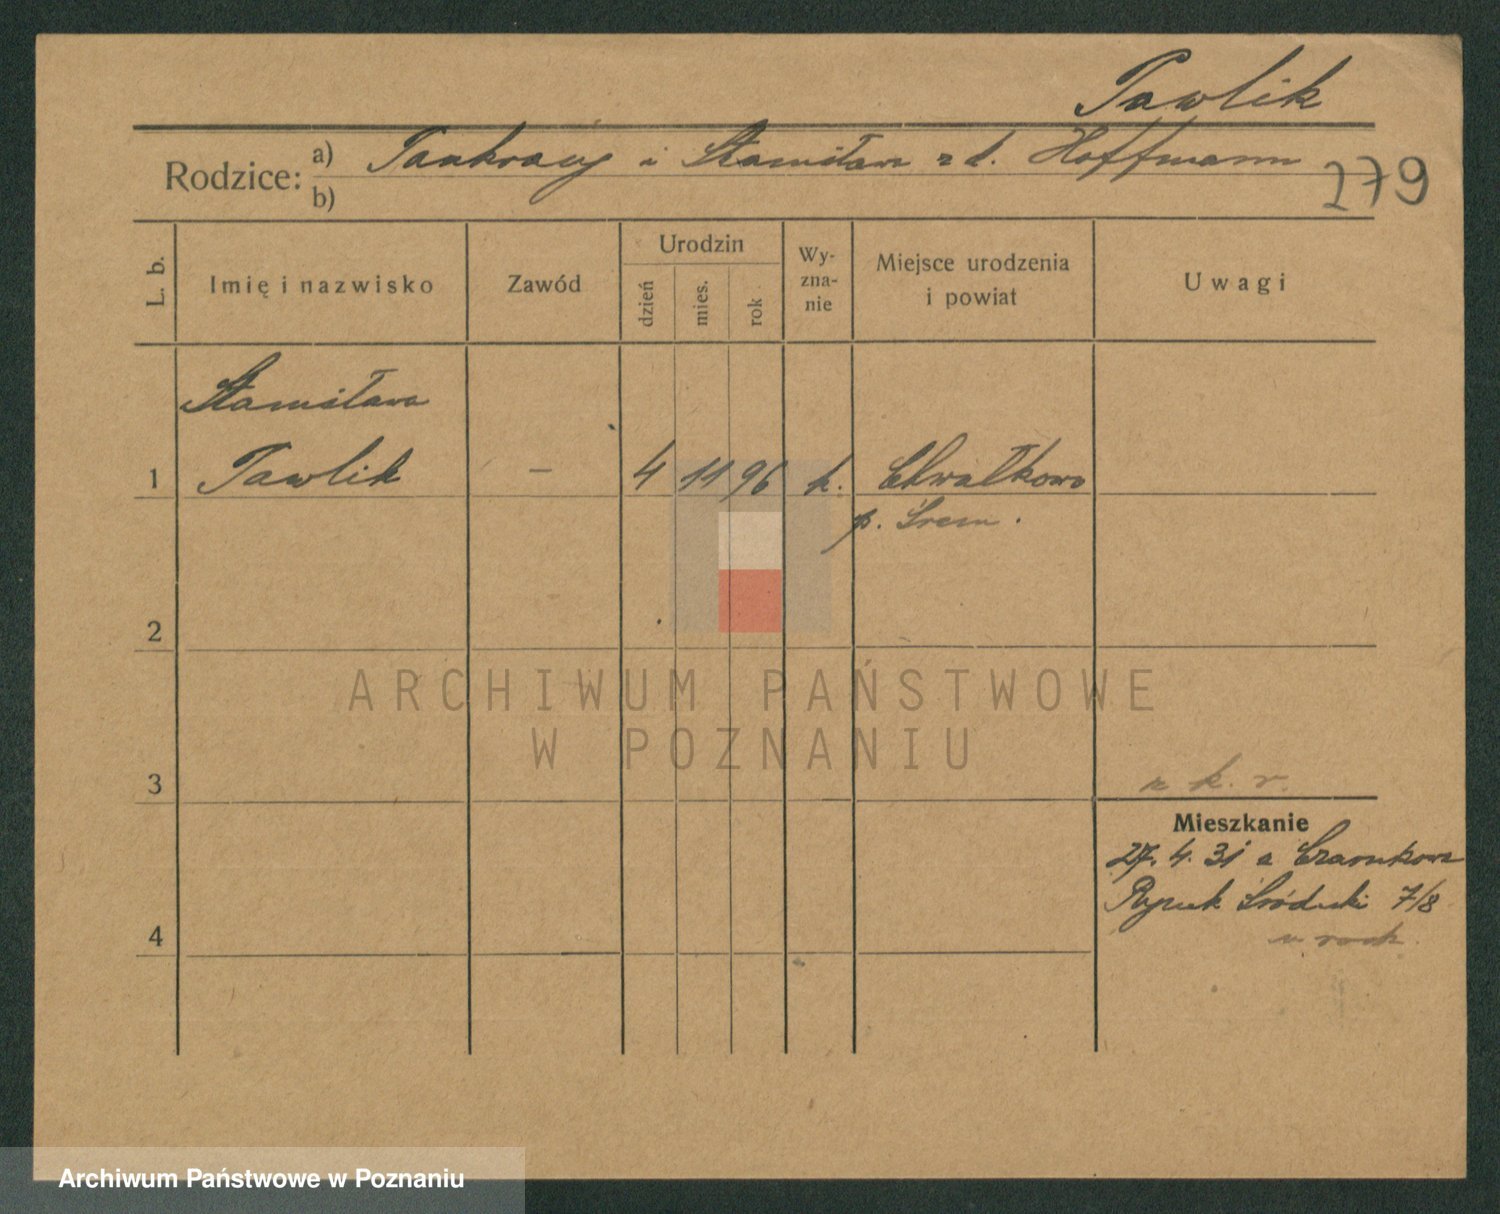 Pawlik
Rodzice: a) Pankracy i Stanisława z d. Hoffmann
b)
279
L. b.
Imię i nazwisko
Zawód
Urodzin
dzień
mies.
rok
Wy-
zna-
nie
Miejsce urodzenia
i powiat
Uwagi
Stanisława
1 Pawlik – 4 11 96 k. Chwałkowo
p. Śrem.
2
ARCHIWUM PAŃSTWOWE
W POZNANIU
3
z k. r.
Mieszkanie
27. 4. 31 z Czarnkowa
Rynek Śródecki 7/8
4
Archiwum Państwowe w Poznaniu